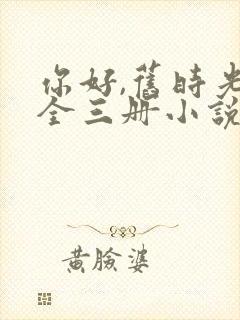 你好,舊時光
全三册小說
黄臉婆